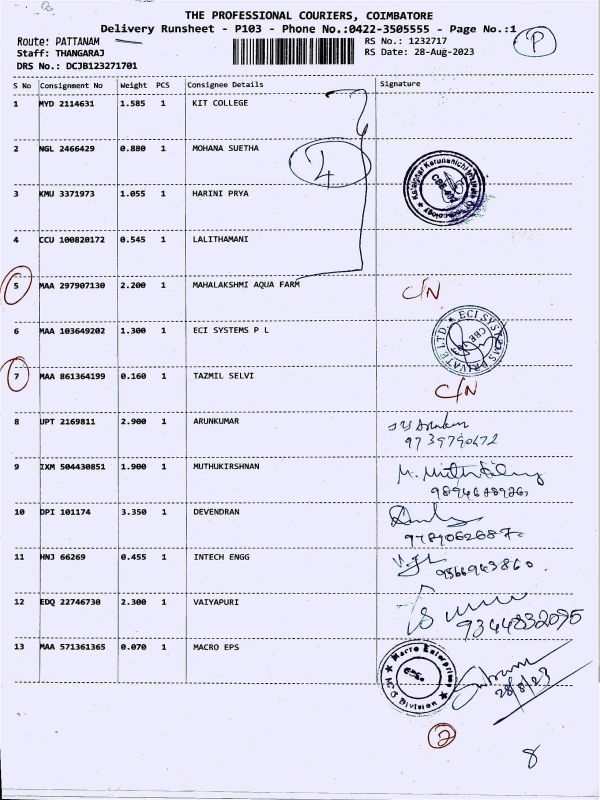 THE PROFESSIONAL COURIERS, COIMBATORE
Delivery Runsheet - P103 - Phone No.:0422-3505555 - Page No.:1
P
Route: PATTANAM
RS No.: 1232717
Staff: THANGARAJ
RS Date: 28-Aug-2023
DRS No.: DCJB123271701
S No Consignment No Weight PCS Consignee Details Signature
1 MYD 2114631 1.585 1 KIT COLLEGE
2 NGL 2466429 0.880 1 MOHANA SUETHA
3 KMU 3371973 1.055 1 HARINI PRYA
4 CCU 100820172 0.545 1 LALITHAMANI
5 MAA 297907130 2.200 1 MAHALAKSHMI AQUA FARM C/N
6 MAA 103649202 1.300 1 ECI SYSTEMS P L
ECI SYSTEMS PRIVATE LTD. CBE
7 MAA 861364199 0.160 1 TAZMIL SELVI C/N
8 UPT 2169811 2.900 1 ARUNKUMAR
9 IXM 504430851 1.900 1 MUTHUKIRSHNAN
10 DPI 101174 3.350 1 DEVENDRAN
11 HNJ 66269 0.455 1 INTECH ENGG
9566943860
12 EDQ 22746730 2.300 1 VAIYAPURI
9344832095
13 MAA 571361365 0.070 1 MACRO EPS
Macro Enterprises
Division
28/8/23
2
8